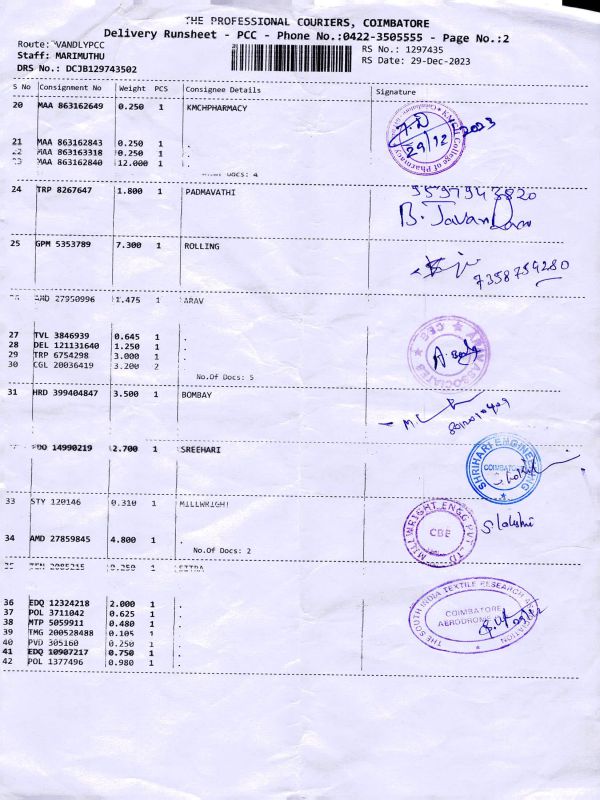 THE PROFESSIONAL COURIERS, COIMBATORE
Delivery Runsheet - PCC - Phone No.:0422-3505555 - Page No.:2
Route: VANDLYPCC
Staff: MARIMUTHU
DRS No.: DCJB129743502
RS No.: 1297435
RS Date: 29-Dec-2023
S No Consignment No Weight PCS Consignee Details Signature
20 MAA 863162649 0.250 1 KMCHPHARMACY
29/12/2023
College of Pharmacy
21 MAA 863162843 0.250 1 .
22 MAA 863163318 0.250 1 .
23 MAA 863162840 12.000 1 .
Docs: 4
24 TRP 8267647 1.800 1 PADMAVATHI
25 GPM 5353789 7.300 1 ROLLING
7358754280
AMD 27950996 1.475 1 ARAV
27 TVL 3846939 0.645 1 .
28 DEL 121131640 1.250 1 .
29 TRP 6754298 3.000 1 .
30 CGL 20036419 3.200 2 .
No.Of Docs: 5
31 HRD 399404847 3.500 1 BOMBAY
14990219 2.700 1 SREEHARI
SHRIHARI ENGINEERING
COIMBATORE
33 STY 120146 0.310 1 MILLWRIGHT
MILLWRIGHT ENGG PVT. LTD
CBE
34 AMD 27859845 4.800 1 .
No.Of Docs: 2
0.250 1 SITRA
THE SOUTH INDIA TEXTILE RESEARCH ASSOCIATION
COIMBATORE
AERODROME
36 EDQ 12324218 2.000 1 .
37 POL 3711042 0.625 1 .
38 MTP 5059911 0.480 1 .
39 TMG 200528488 0.105 1 .
40 PVD 305160 0.250 1 .
41 EDQ 10907217 0.750 1 .
42 POL 1377496 0.980 1 .